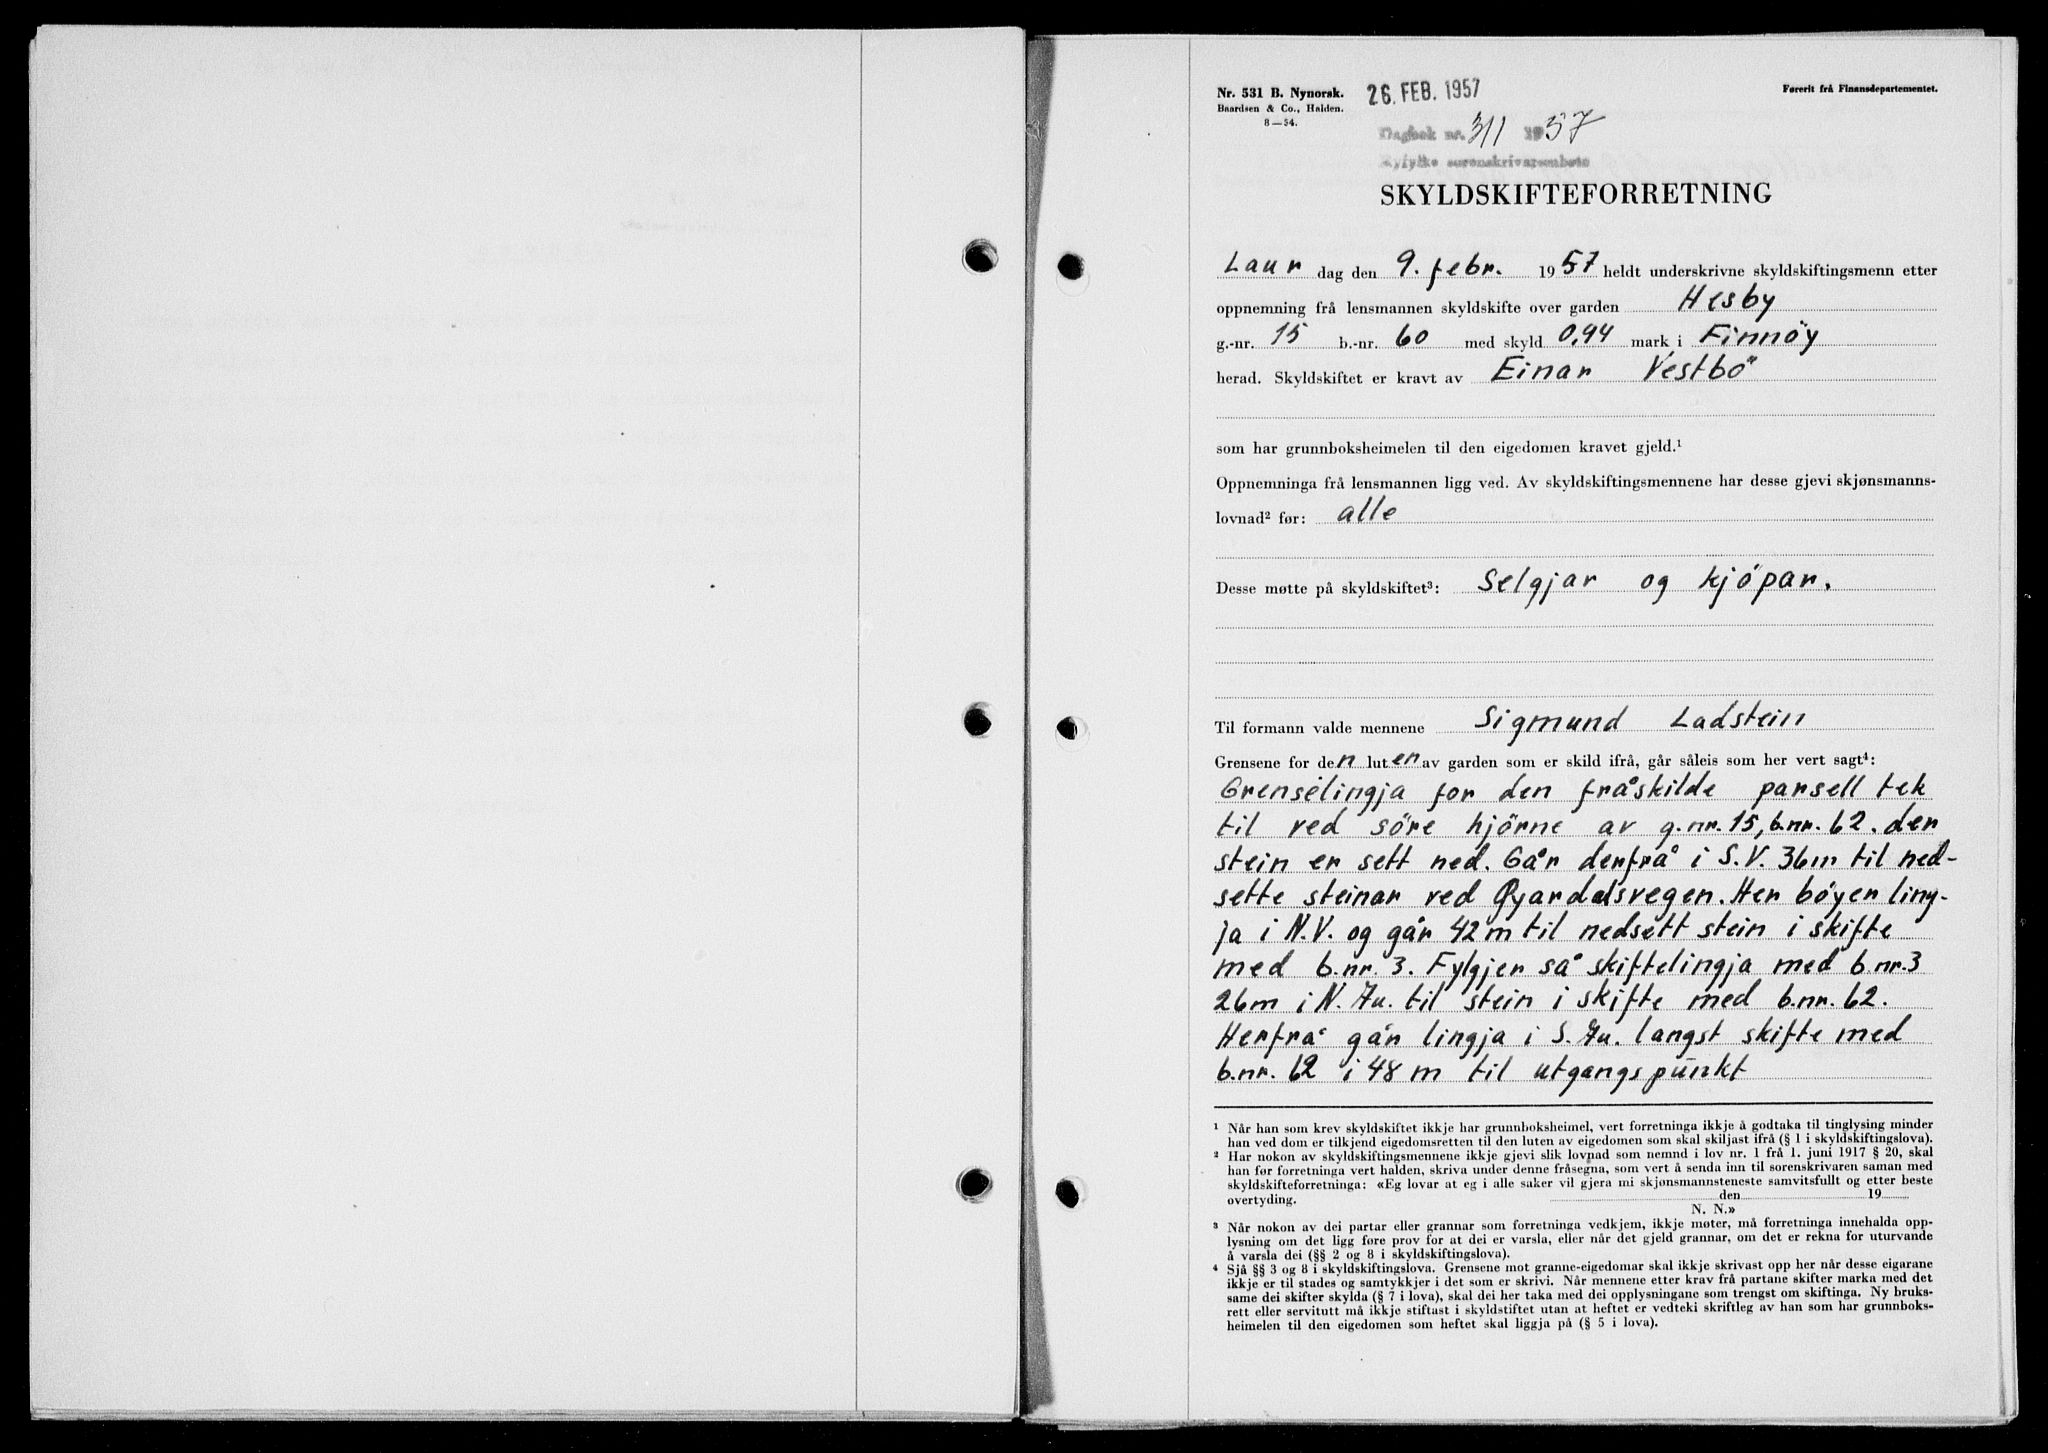 Nr. 531 B. Nynorsk.
Baardsen & Co., Halden.
8—54.
26. FEB. 1957
Førerit frå Finansdepartementet.
Dagbok nr. 311 1957
Ryfylke sorenskrivarembete
SKYLDSKIFTEFORRETNING
Laur dag den 9. febr. 1957 heldt underskrivne skyldskiftingsmenn etter
oppnemning frå lensmannen skyldskifte over garden Hesby
g.-nr. 15 b.-nr. 60 med skyld 0,94 mark i Finnöy
herad. Skyldskiftet er kravt av Einar Vestbö
som har grunnboksheimelen til den eigedomen kravet gjeld.¹
Oppnemninga frå lensmannen ligg ved. Av skyldskiftingsmennene har desse gjevi skjønsmanns-
lovnad² før: alle
Desse møtte på skyldskiftet³: Selgjar og kjöpar.
Til formann valde mennene Sigmund Ladstein
Grensene for den luten av garden som er skild ifrå, går såleis som her vert sagt⁴:
Grenselingja for den fråskilde parsell tek
til ved söre hjörne av g.nr. 15, b.nr. 62. der
stein er sett ned. Går derfrå i S.V. 36m til ned-
sette steinar ved Øyardalsvegen. Her böyer ling-
ja i N.V. og går 42m til nedsett stein i skifte
med b.nr. 3. Fylgjer så skiftelingja med b.nr.3
26m i N. Au. til stein i skifte med b.nr. 62.
Herfrå går lingja i S. Au. langst skifte med
b.nr. 62 i 48 m til utgangspunkt
¹ Når han som krev skyldskiftet ikkje har grunnboksheimel, vert forretninga ikkje å godtaka til tinglysing minder
han ved dom er tilkjend eigedomsretten til den luten av eigedomen som skal skiljast ifrå (§ 1 i skyldskiftingslova).
² Har nokon av skyldskiftingsmennene ikkje gjevi slik lovnad som nemnd i lov nr. 1 frå 1. juni 1917 § 20, skal
han før forretninga vert halden, skriva under denne fråsegna, som vert å senda inn til sorenskrivaren saman med
skyldskifteforretninga: «Eg lovar at eg i alle saker vil gjera mi skjønsmannsteneste samvitsfullt og etter beste
overtyding. den 19
N. N.»
³ Når nokon av dei partar eller grannar som forretninga vedkjem, ikkje møter, må forretninga innehalda opp-
lysning om det ligg føre prov for at dei er varsla, eller når det gjeld grannar, om det er rekna for uturvande
å varsla dei (§§ 2 og 8 i skyldskiftingslova).
⁴ Sjå §§ 3 og 8 i skyldskiftingslova. Grensene mot granne-eigedomar skal ikkje skrivast opp her når desse eigarane
ikkje er til stades og samtykkjer i det som er skrivi. Når mennene etter krav frå partane skifter marka med det
same dei skifter skylda (§ 7 i lova), skal dei her taka med dei opplysningane som trengst om skiftinga. Ny bruks-
rett eller servitutt må ikkje stiftast i skyldstiftet utan at heftet er vedteki skriftleg av han som har grunnboks-
heimelen til den eigedomen som heftet skal liggja på (§ 5 i lova).